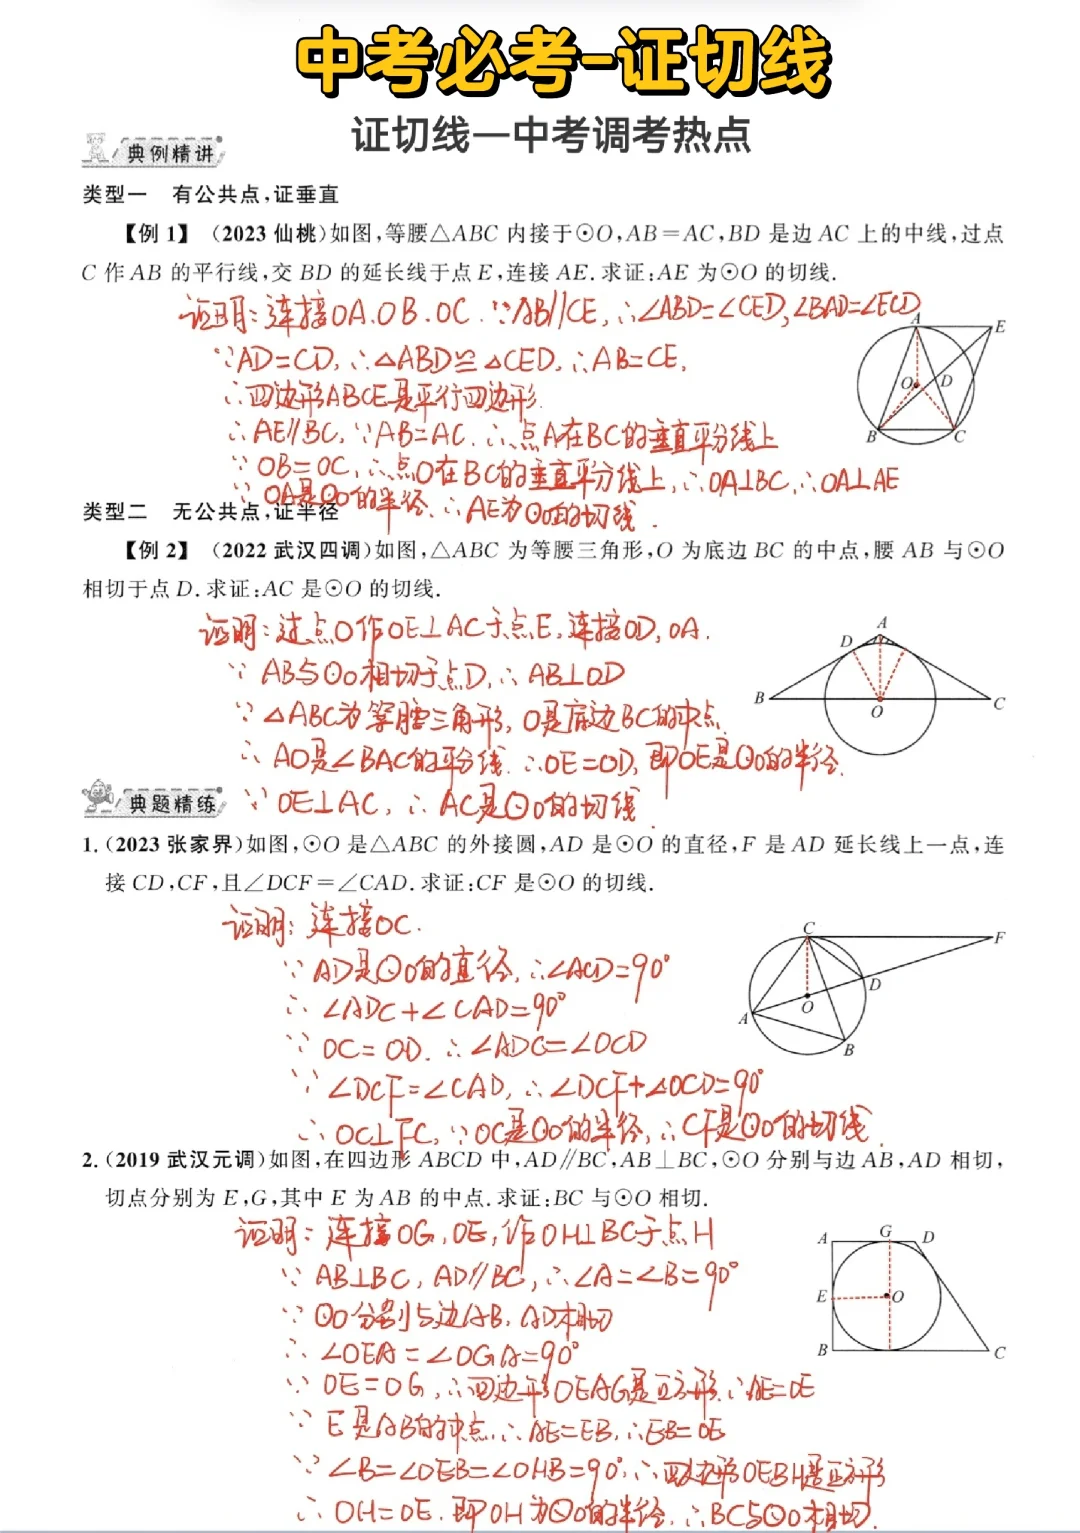 中考必考-证切线
证切线—中考调考热点
典例精讲
类型一 有公共点,证垂直
【例1】 (2023 仙桃)如图,等腰△ABC 内接于⊙O,AB=AC,BD 是边 AC 上的中线,过点
C 作 AB 的平行线,交 BD 的延长线于点 E,连接 AE. 求证:AE 为⊙O 的切线.
证明:连接OA.OB.OC. ∵AB∥CE, ∴∠ABD=∠CED,∠BAD=∠ECD
∵AD=CD, ∴△ABD≌△CED, ∴AB=CE,
∴四边形ABCE是平行四边形.
∴AE∥BC, ∵AB=AC. ∴点A在BC的垂直平分线上
∵OB=OC, ∴点O在BC的垂直平分线上, ∴OA⊥BC, ∴OA⊥AE
∵OA是⊙O的半径, ∴AE为⊙O的切线.
A
E
O
D
B
C
类型二 无公共点,证半径
【例2】 (2022 武汉四调)如图,△ABC 为等腰三角形,O 为底边 BC 的中点,腰 AB 与⊙O
相切于点 D. 求证:AC 是⊙O 的切线.
证明:过点O作OE⊥AC于点E,连接OD,OA.
∵AB与⊙O相切于点D, ∴AB⊥OD
∵△ABC为等腰三角形,O是底边BC的中点
∴AO是∠BAC的平分线. ∴OE=OD, 即OE是⊙O的半径.
∵OE⊥AC, ∴AC是⊙O的切线.
A
D
B
O
C
典题精练
1. (2023 张家界)如图,⊙O 是△ABC 的外接圆,AD 是⊙O 的直径,F 是 AD 延长线上一点,连
接 CD,CF,且∠DCF=∠CAD. 求证:CF 是⊙O 的切线.
证明:连接OC.
∵AD是⊙O的直径, ∴∠ACD=90°
∴∠ADC+∠CAD=90°
∵OC=OD. ∴∠ADC=∠OCD
∵∠DCF=∠CAD, ∴∠DCF+∠OCD=90°
∴OC⊥FC, ∵OC是⊙O的半径, ∴CF是⊙O的切线.
C
F
D
O
A
B
2. (2019 武汉元调)如图,在四边形 ABCD 中,AD∥BC,AB⊥BC,⊙O 分别与边 AB,AD 相切,
切点分别为 E,G,其中 E 为 AB 的中点. 求证:BC 与⊙O 相切.
证明:连接OG,OE,作OH⊥BC于点H
∵AB⊥BC, AD∥BC, ∴∠A=∠B=90°
∵⊙O分别与边AB,AD相切
∴∠OEA=∠OGA=90°
∵OE=OG, ∴四边形OEAG是正方形. ∴AE=OE
∵E是AB的中点, ∴AE=EB, ∴EB=OE
∵∠B=∠OEB=∠OHB=90°, ∴四边形OEBH是正方形
∴OH=OE. 即OH为⊙O的半径, ∴BC与⊙O相切.
A
G
D
E
O
B
C